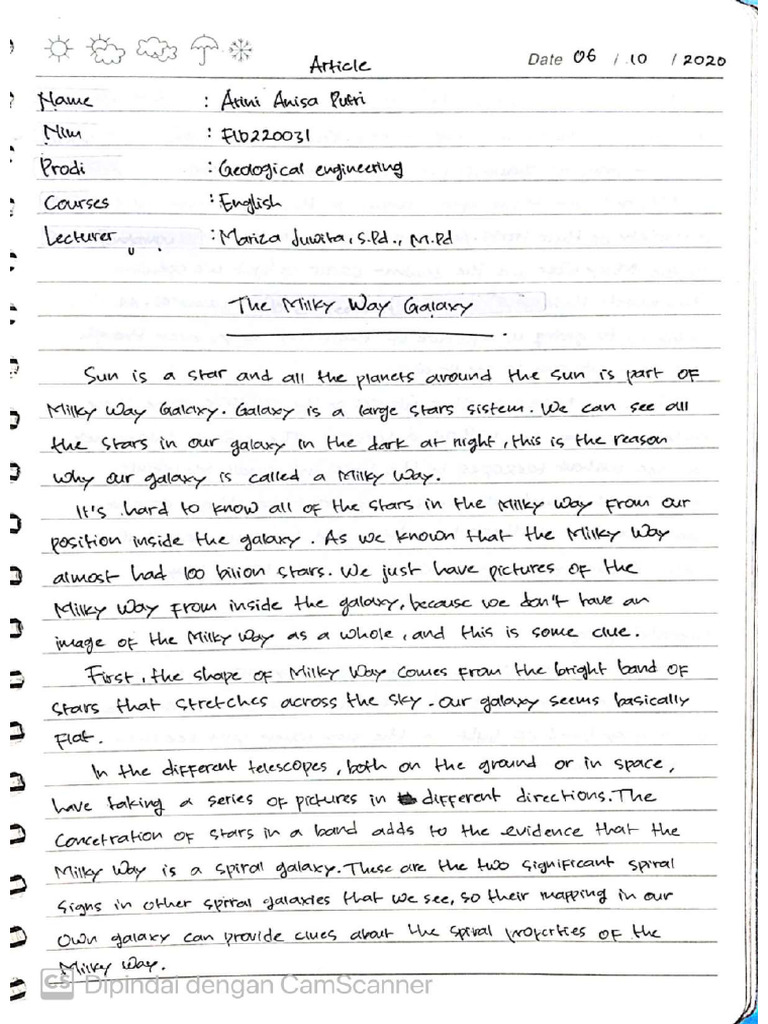 Article
Date 06 / 10 / 2020
Name : Arini Anisa Putri
Nim : F1D220031
Prodi : Geological engineering
Courses : English
Lecturer : Mariza Juwita, S.Pd., M.Pd
The Milky Way Galaxy
Sun is a star and all the planets around the sun is part of
Milky Way Galaxy. Galaxy is a large stars sistem. We can see all
the stars in our galaxy in the dark at night, this is the reason
why our galaxy is called a Milky Way.
It's hard to know all of the stars in the Milky Way from our
position inside the galaxy. As we known that the Milky Way
almost had 100 bilion stars. We just have pictures of the
Milky Way from inside the galaxy, because we don't have an
image of the Milky Way as a whole, and this is some clue.
First, the shape of Milky Way comes from the bright band of
stars that stretches across the sky. Our galaxy seems basically
flat.
In the different telescopes, both on the ground or in space,
have taking a series of pictures in different directions. The
concetration of stars in a band adds to the evidence that the
Milky Way is a spiral galaxy. These are the two significant spiral
signs in other spiral galaxies that we see, so their mapping in our
own galaxy can provide clues about the spiral properties of the
Milky Way.
CS Dipindai dengan CamScanner